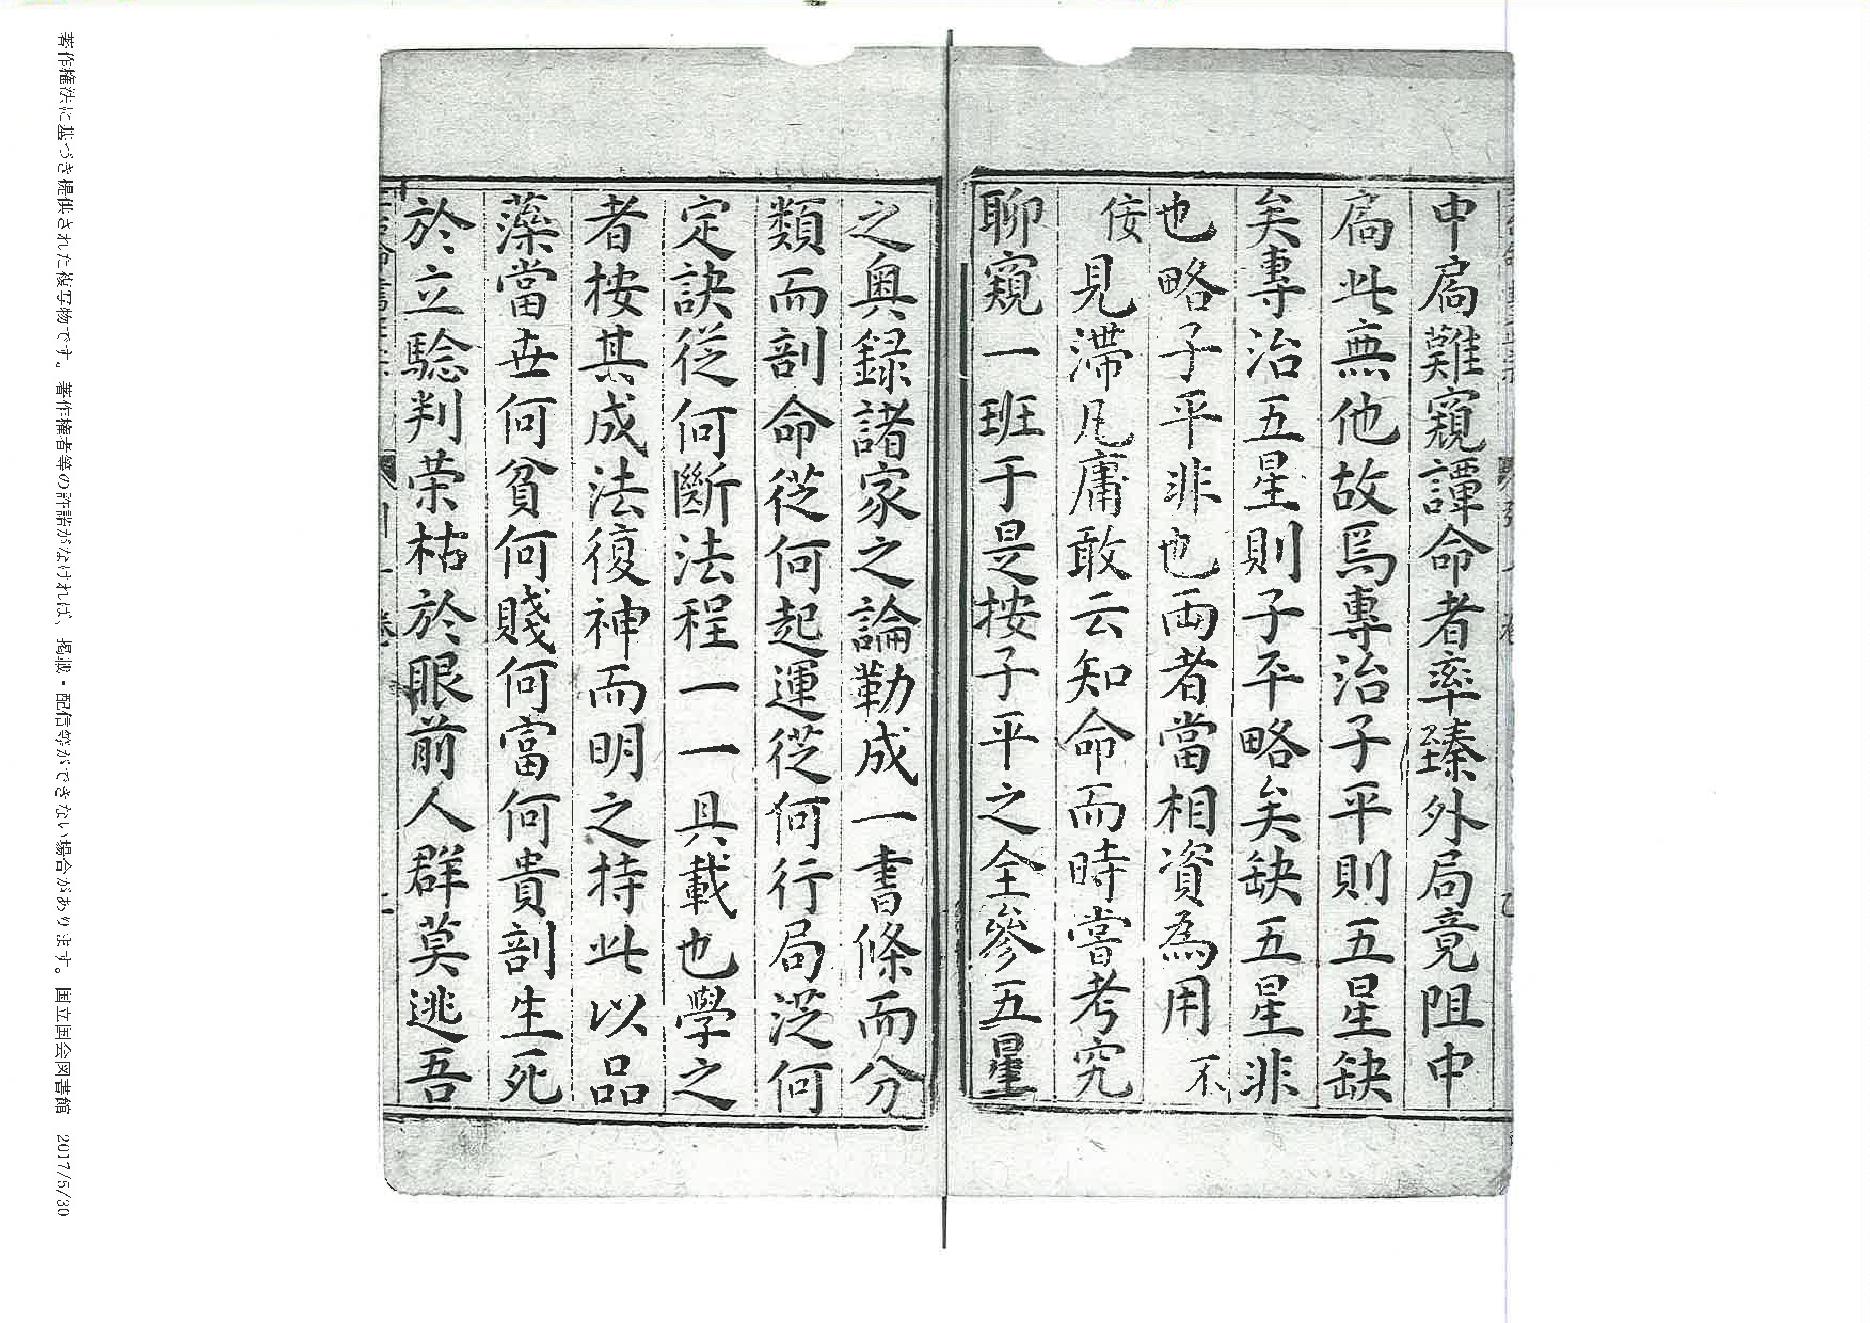 中扃難窺譚命者率臻外局竟阻中
扃此無他故焉專治子平則五星缺
矣專治五星則子平略矣缺五星非
也略子平非也両者當相資為用不
佞見滯凡庸敢云知命而時嘗考究
聊窺一班于是按子平之全參五星
之奥録諸家之論勒成一書條而分
類而剖命從何起運從何行局從何
定訣從何斷法程一一具載也學之
者按其成法復神而明之持此以品
藻當世何貧何賤何富何貴剖生死
於立騐判荣枯於眼前人群莫逃吾
著作権法に基づき提供された複写物です。著作権者等の許諾がなければ、掲載・配信等ができない場合があります。国立国会図書館 2017/5/30